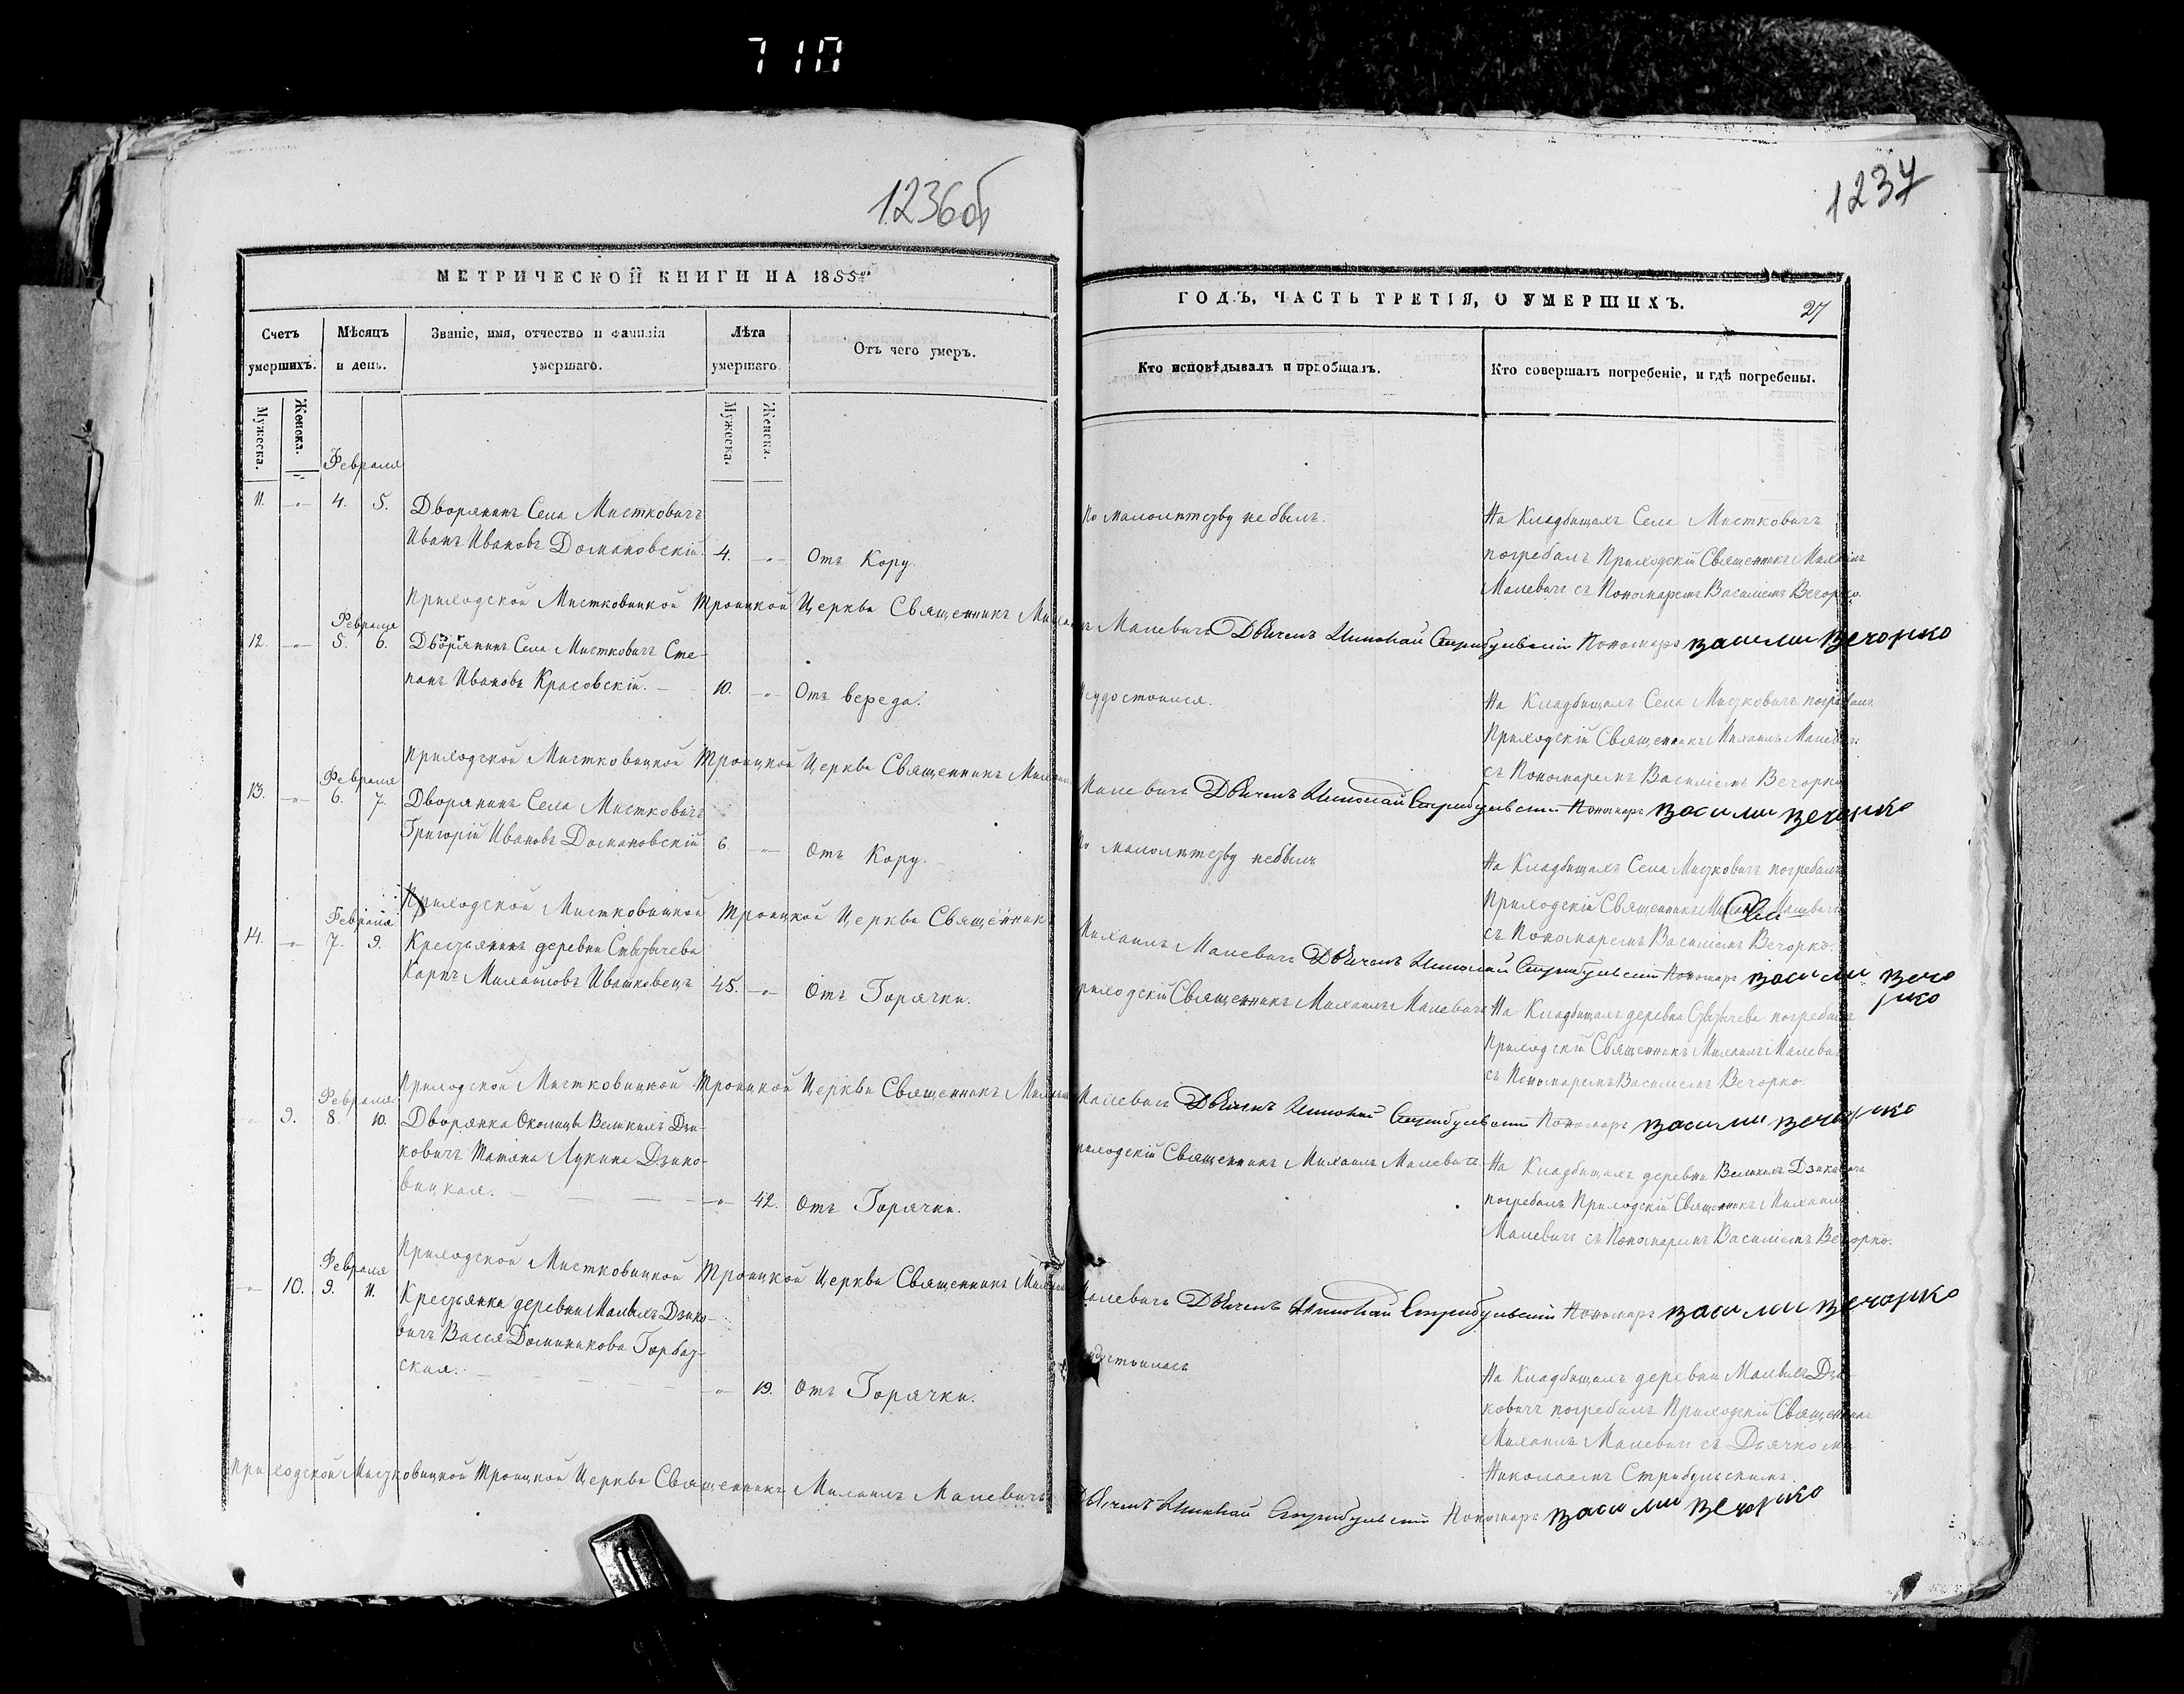 710
1236об
МЕТРИЧЕСКОЙ КНИГИ НА 1855й
Счетъ умершихъ.
Мѣсяцъ и день.
Званіе, имя, отчество и фамилія умершаго.
Лѣта умершаго.
Отъ чего умеръ.
Мужеска. Женска.
Мужеска. Женска.
Февраля
11. — 4. 5. Дворянинъ Села Мистковичъ
Иванъ Ивановъ Домановскій. 4. — Отъ Кору.
Приходской Мистковицкой Троицкой Церкви Священникъ Михаилъ
Февраля
12. — 5. 6. Дворянинъ Села Мистковичъ Сте-
панъ Ивановъ Красовскій. — 10. — Отъ вереда.
Приходской Мистковицкой Троицкой Церкви Священникъ Михаилъ
Февраля
13. — 6. 7. Дворянинъ Села Мистковичъ
Григорій Ивановъ Домановскій 6. — Отъ Кору. —
Приходской Мистковицкой Троицкой Церкви Священникъ
Февраля
14. — 7. 9. Крестьянинъ деревни
Карпъ Михаиловъ Ивашковецъ 45. — Отъ Горячки.
Приходской Мистковицкой Троицкой Церкви Священникъ Михаилъ
Февраля
— 9. 8. 10. Дворянка Околицы Великихъ Дзи-
ковичъ Татяна Лукина Дзико-
вицкая. — — 42. Отъ Горячки.
Приходской Мистковицкой Троицкой Церкви Священникъ Михаилъ
Февраля
— 10. 9. 11. Крестьянка деревни Малыхъ Дзико-
вичъ Васса Доминикова Горбач-
ская. — — 19. Отъ Горячки.
Приходской Мистковицкой Троицкой Церкви Священникъ Михаилъ Малевичъ
1237
ГОДЪ, ЧАСТЬ ТРЕТІЯ, О УМЕРШИХЪ.
27
Кто исповѣдывалъ и пріобщалъ.
Кто совершалъ погребеніе, и гдѣ погребены.
По малолѣтству не былъ.
На Кладбищахъ Села Мистковичъ
погребалъ Приходскій Священникъ Михаилъ
Малевичъ съ Пономаремъ Василіемъ Вечорко.
Малевичъ Дьячекъ Николай Стрибульский Пономаръ Васили Вечорко
Неудостоился.
На Кладбищахъ Села Мистковичъ погребалъ
Приходскій Священникъ Михаилъ Малевичъ
съ Пономаремъ Василіемъ Вечорко
Малевичъ Дьячекъ Николай Стрибульский Пономаръ Васили Вечорко
По малолѣтству небылъ
На Кладбищахъ Села Мистковичъ погребалъ
Приходскій Священникъ Михаилъ Малевичъ
съ Пономаремъ Василіемъ Вечорко.
Михаилъ Малевичъ Дьячекъ Николай Стрибульский Пономаръ Васили Вечо
рко
Приходскій Священникъ Михаилъ Малевичъ
На Кладбищахъ деревни погребалъ
Приходскій Священникъ Михаилъ Малевичъ
съ Пономаремъ Василіемъ Вечорко.
Малевичъ Дьячекъ Николай Стрибульский Пономаръ Васили Вечорко
Приходскій Священникъ Михаилъ Малевичъ.
На Кладбищахъ деревни Великихъ Дзиковичъ
погребалъ Приходскій Священникъ Михаилъ
Малевичъ съ Пономаремъ Василіемъ Вечорко.
Малевичъ Дьячекъ Николай Стрибульский Пономаръ Васили Вечорко
Неудостоилась
На Кладбищахъ деревни Малыхъ Дзи-
ковичъ погребалъ Приходскій Священникъ
Михаилъ Малевичъ съ Дьячкомъ
Николаемъ Стрибульскимъ.
Дьячекъ Николай Стрибульский Пономаръ Васили Вечорко